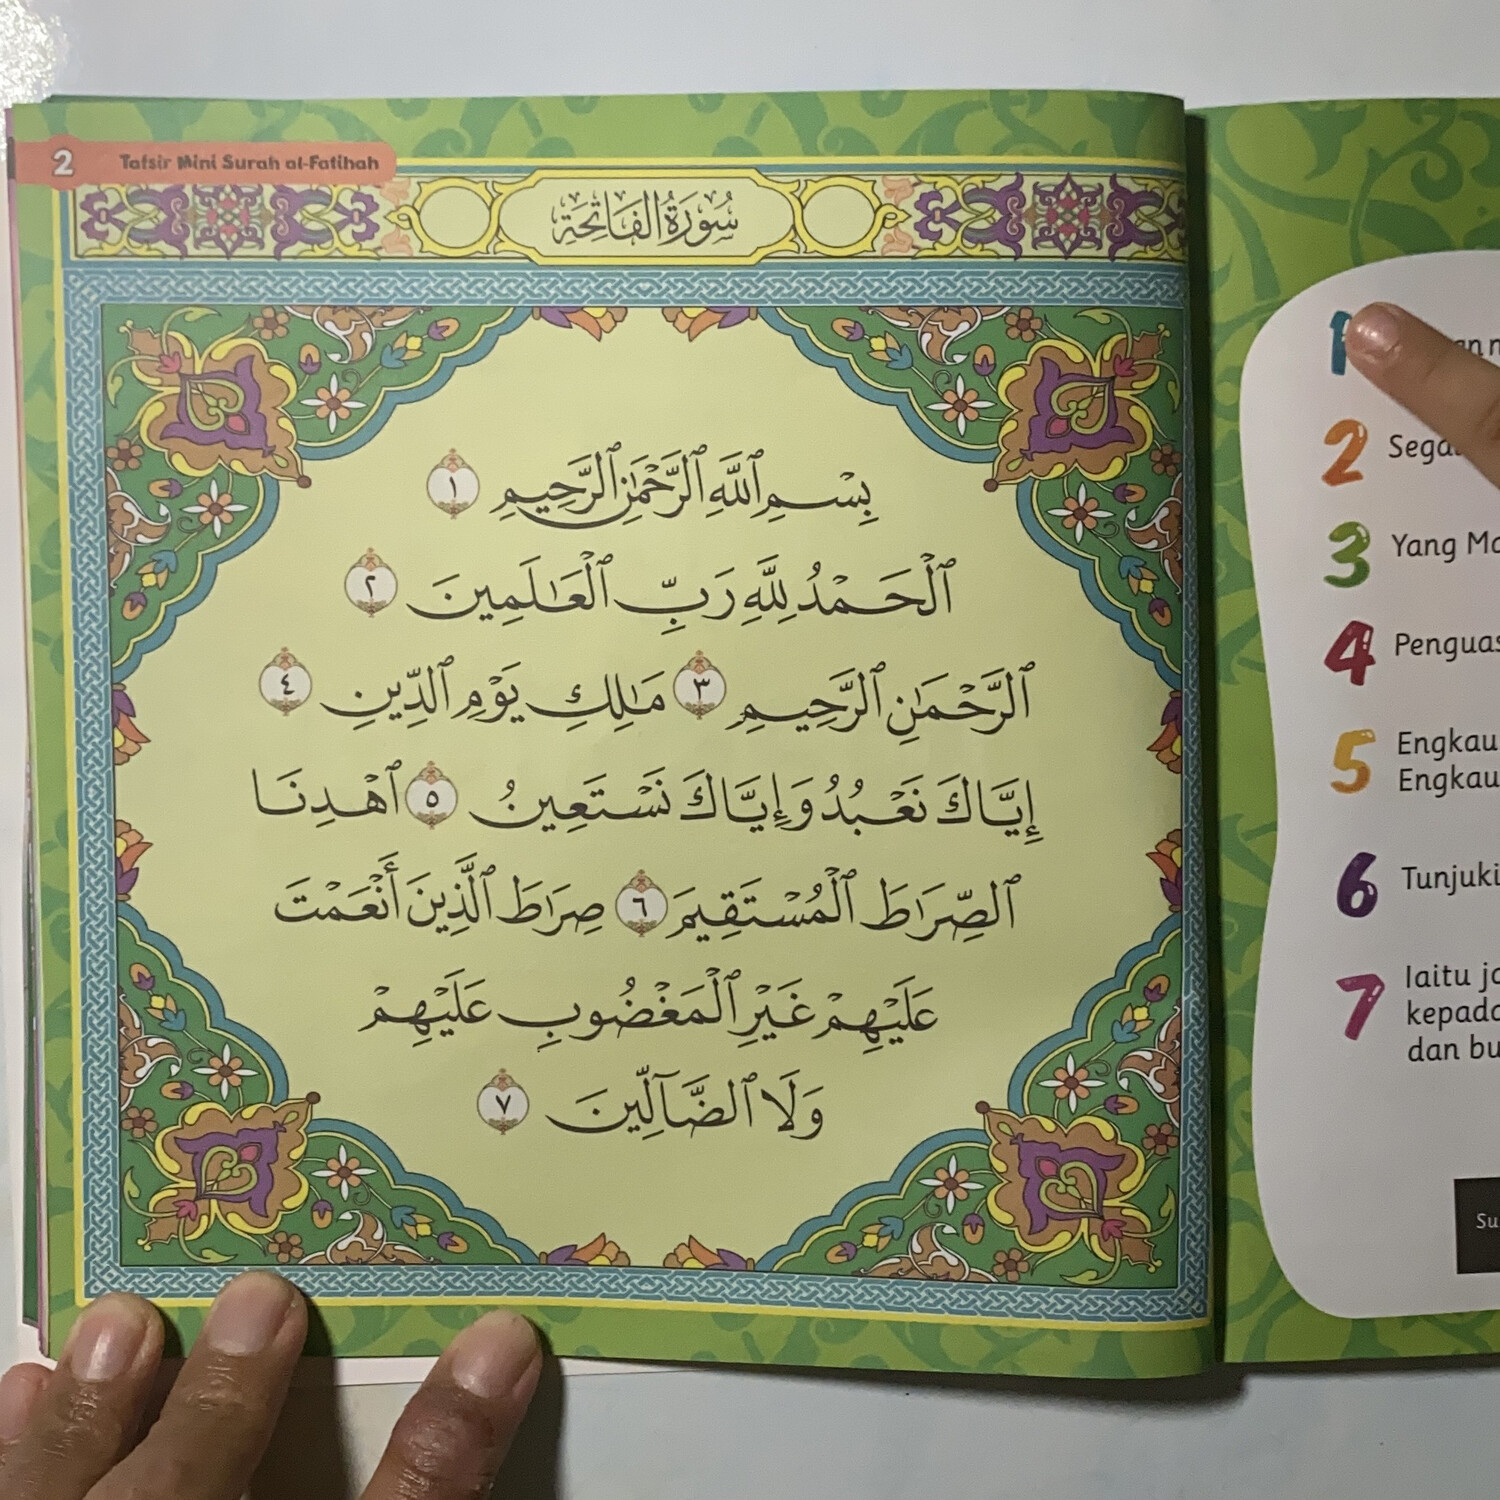 2 Tafsir Mini Surah al-Fatihah
سُورَةُ الْفَاتِحَةِ
بِسْمِ ٱللَّهِ ٱلرَّحْمَٰنِ ٱلرَّحِيمِ ١
ٱلْحَمْدُ لِلَّهِ رَبِّ ٱلْعَٰلَمِينَ ٢
ٱلرَّحْمَٰنِ ٱلرَّحِيمِ ٣ مَٰلِكِ يَوْمِ ٱلدِّينِ ٤
إِيَّاكَ نَعْبُدُ وَإِيَّاكَ نَسْتَعِينُ ٥ ٱهْدِنَا
ٱلصِّرَٰطَ ٱلْمُسْتَقِيمَ ٦ صِرَٰطَ ٱلَّذِينَ أَنْعَمْتَ
عَلَيْهِمْ غَيْرِ ٱلْمَغْضُوبِ عَلَيْهِمْ
وَلَا ٱلضَّآلِّينَ ٧
1
2
3 Yang
4
5 Engkau
Engkau
6
7 Iaitu
dan